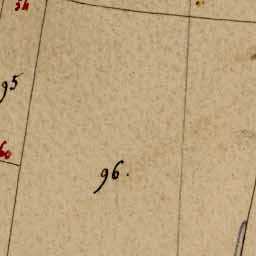 34
95
60
96.